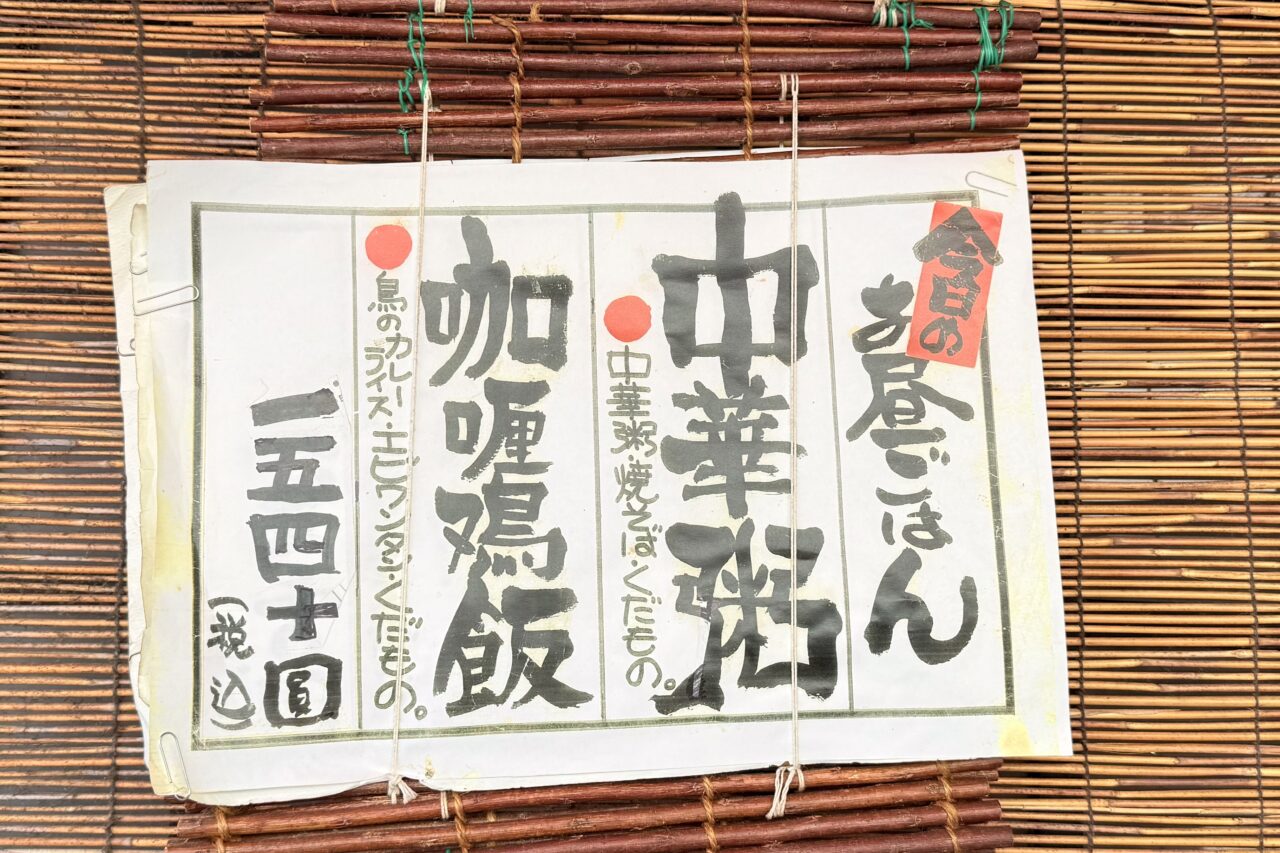 今日の
お昼ごはん
中華粥
中華粥・焼そば・くだもの。
咖喱鶏飯
鳥のカレー
ライス・エビワンタン・くだもの。
一五四十圓
(税込)